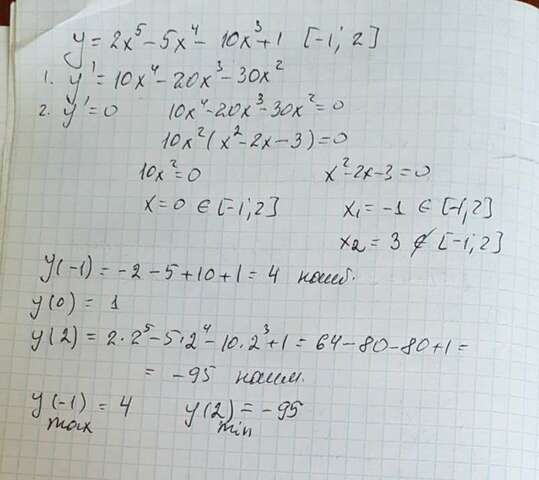 y = 2x⁵ - 5x⁴ - 10x³ + 1 [-1; 2]
1. y' = 10x⁴ - 20x³ - 30x²
2. y' = 0 10x⁴ - 20x³ - 30x² = 0
10x²(x² - 2x - 3) = 0
10x² = 0 x² - 2x - 3 = 0
x = 0 ∈ [-1; 2] x₁ = -1 ∈ [-1; 2]
x₂ = 3 ∉ [-1; 2]
y(-1) = -2 - 5 + 10 + 1 = 4 наиб.
y(0) = 1
y(2) = 2·2⁵ - 5·2⁴ - 10·2³ + 1 = 64 - 80 - 80 + 1 =
= -95 наим.
y(-1) = 4 y(2) = -95
max min